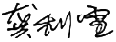 龚利雪